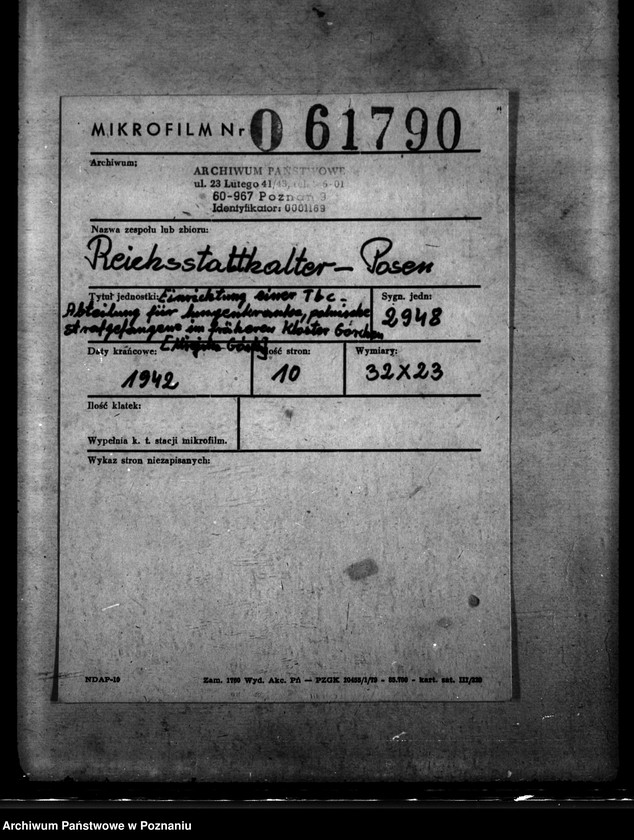 MIKROFILM Nr 0 61790
Archiwum:
ARCHIWUM PAŃSTWOWE
ul. 23 Lutego 41/43,
60-967 Poznań
Identyfikator: 0001169
Nazwa zespołu lub zbioru:
Reichsstatthalter – Posen
Tytuł jednostki: Einrichtung einer Tbc –
Abteilung für lungenkranke, polnische
Strafgefangene im früheren Kloster Görchen
Sygn. jedn:
2948
Daty krańcowe:
1942
Ilość stron:
10
Wymiary:
32x23
Ilość klatek:
Wypełnia k. t. stacji mikrofilm.
Wykaz stron niezapisanych:
NDAP-10
Zam. 1790 Wyd. Akc. Pń — PZGK
kart. sat. III/220
Archiwum Państwowe w Poznaniu